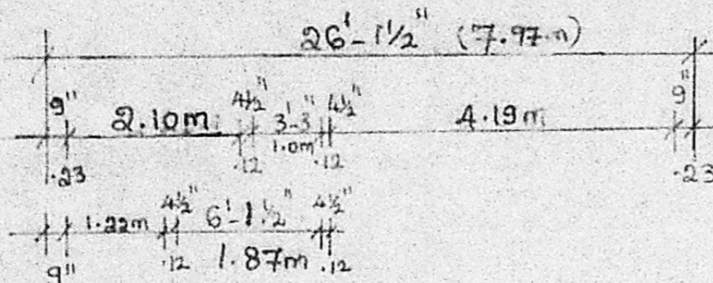 26'-1½" (7.97m)
9" 2.10m 4½" 3'-3" 4½" 4.19m 9"
.23 .12 1.0m .12 .23
1.22m 4½" 6'-1½" 4½"
9" .12 1.87m .12